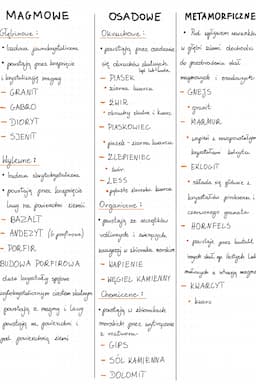 MAGMOWE
Głębinowe:
• budowa jawnokrystaliczna
• powstają przez krzepnięcie
i krystalizację magmy
- GRANIT
- GABRO
- DIORYT
- SJENIT
Wylewne:
• budowa skrytokrystaliczna
• powstają przez krzepnięcie
lawy na powierzchni ziemi
- BAZALT
- ANDEZYT
- PORFIR
BUDOWA PORFIROWA
duże kryształy spojone
skrytokrystalicznym ciastem skalnym
powstają z magmy i lawy
powstają na powierzchni i
pod powierzchnią ziemi
OSADOWE
Okruchowe:
• powstają przez osadzanie
się okruchów skalnych
- PIASEK
- ziarna kwarcu
- ŻWIR
- okruchy skalne i kwarc
- PIASKOWIEC
- piasek - ziarna kwarcu
- ZLEPIENIEC
- żwir
- LESS
Organiczne:
• powstają ze szczątków
roślinnych i zwierzęcych,
zazwyczaj w zbiorniku morskim
- WAPIENIE
- WĘGIEL KAMIENNY
Chemiczne:
• powstają w zbiornikach
morskich przez wytrącanie
z roztworu
- GIPS
- SÓL KAMIENNA
- DOLOMIT
METAMORFICZNE
• Pod wpływem warunków
w głębi ziemi dochodzi
do przeobrażenia skał
magmowych i osadowych
- GNEJS
- granit
- MARMUR
- wapień z
kryształami kalcytu
- EKLOGIT
- składa się głównie z
kryształów piroksenu i
czerwonego granatu
- HORNFELS
- powstaje przez kontakt
- KWARCYT
- kwarc